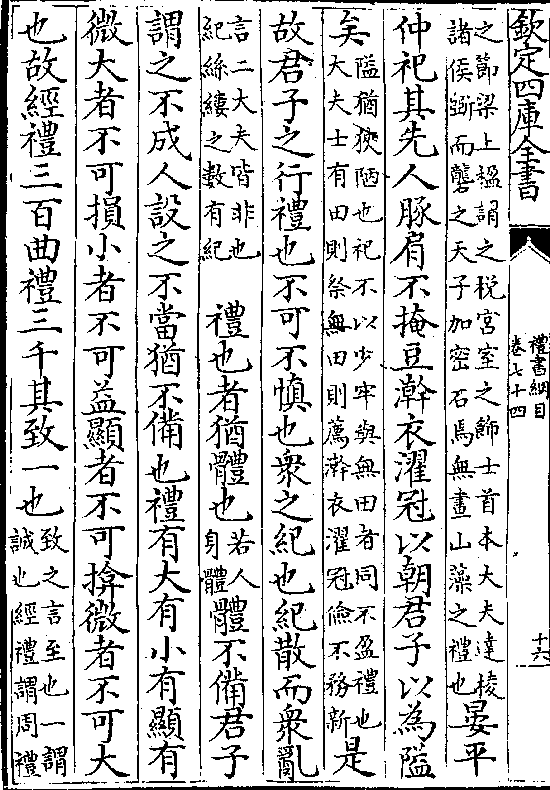 欽定四庫全書
禮書綱目
卷七十四
十六
之節梁上楹謂之税宮室之飾士首本大夫達稜
諸侯斲而礱之天子加密石焉無畫山藻之禮也
晏平
仲祀其先人豚肩不掩豆澣衣濯冠以朝君子以為隘
矣
隘猶狹陋也祀不以少牢與無田者同不盈禮也
大夫士有田則祭無田則薦澣衣濯冠儉不務新
是
故君子之行禮也不可不慎也衆之紀也紀散而衆亂
言二大夫皆非也
紀絲縷之數有紀
禮也者猶體也
若人
身體
體不備君子
謂之不成人設之不當猶不備也禮有大有小有顯有
微大者不可損小者不可益顯者不可揜微者不可大
也故經禮三百曲禮三千其致一也
致之言至也一謂
誠也經禮謂周禮